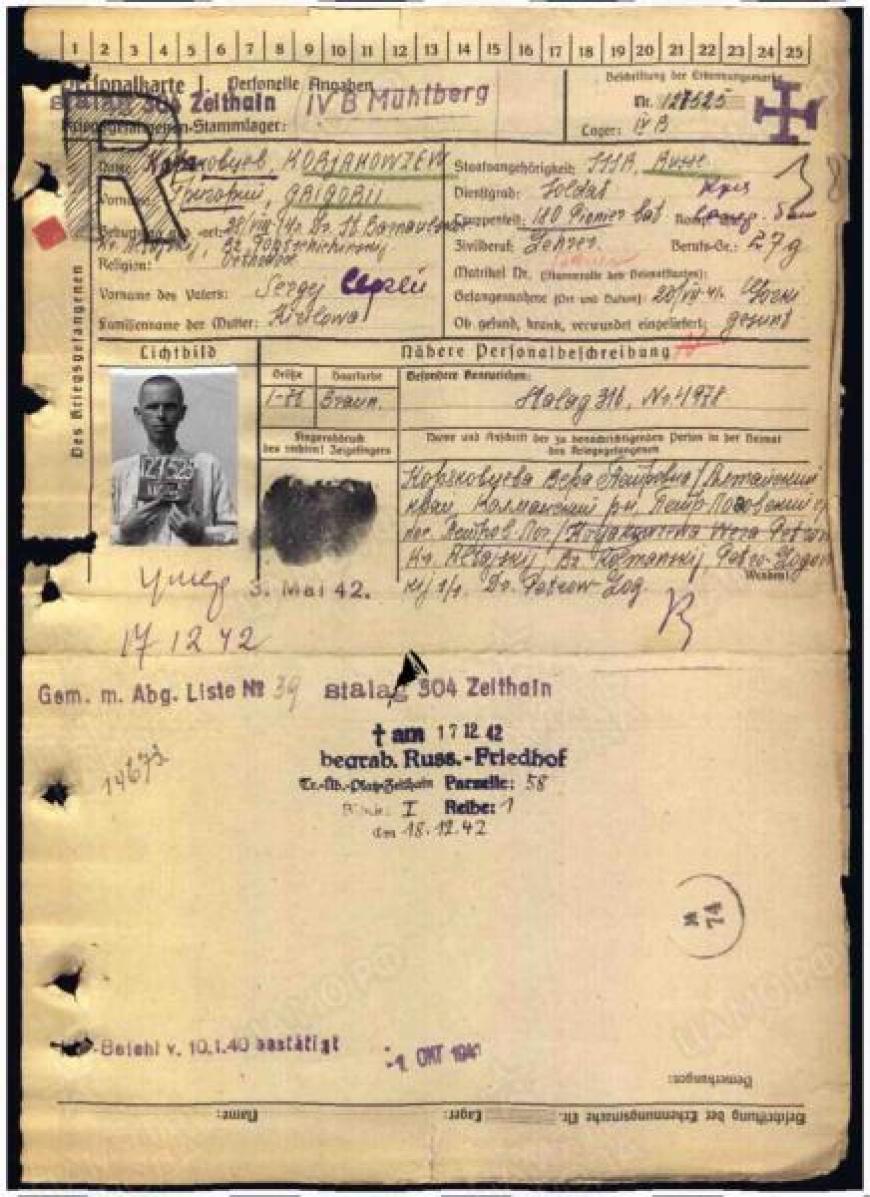 1 2 3 4 5 6 7 8 9 10 11 12 13 14 15 16 17 18 19 20 21 22 23 24 25
Personalkarte I: Personelle Angaben
Stalag 304 Zeithain
IV B Mühlberg
Kriegsgefangenen-Stammlager:
Beschriftung der Erkennungsmarke
Nr. 127525
Lager: IV B
R
Des Kriegsgefangenen
Name: KORJAKOWZEW
Vorname: Григорий, GRIGORIJ
Religion: Orthodox
Vorname des Vaters: Sergej Сергей
Familienname der Mutter: Kirilowa
Staatsangehörigkeit: SSSR, Russe
Dienstgrad: Soldat
Truppenteil: 180 Pionier bat.
Zivilberuf: Lehrer. Berufs-Gr.: 27g
Matrikel Nr. (Stammrolle des Heimatstaates):
Gefangennahme (Ort und Datum): 20/VII 41. Gorki
Ob gesund, krank, verwundet eingeliefert: gesund
Lichtbild
Nähere Personalbeschreibung
Größe Haarfarbe Besondere Kennzeichen:
1-71 Braun. Stalag 316, Nr 4978
127525
IV B
Fingerabdruck
des rechten! Zeigefingers
Name und Anschrift der zu benachrichtigenden Person in der Heimat
des Kriegsgefangenen
Коряковцева Вера Петровна/Алтайский
край, Калманский рн, Петр-Логовский с/с
пос Петров Лог/Korjakowzewa Wera Petrow
Kr. Altajskij, Bz. Kolmanskij, Petro-Logow
skij s/s, Dr. Petrow-Log.
Wenden!
умер 3. Mai 42.
17 12 42
Gem. m. Abg. Liste № 39 Stalag 304 Zeithain
† am 17 12 42
begrab. Russ.-Friedhof
Tr.-Üb.-Platz Zeithain Parzelle: 58
Block: I Reihe: 1
den 18.12.42
14673
N
74
-Befehl v. 10.1.40 bestätigt
-1 OKT 1941
Bemerkungen:
Beschriftung der Erkennungsmarke Nr. Lager: Name: